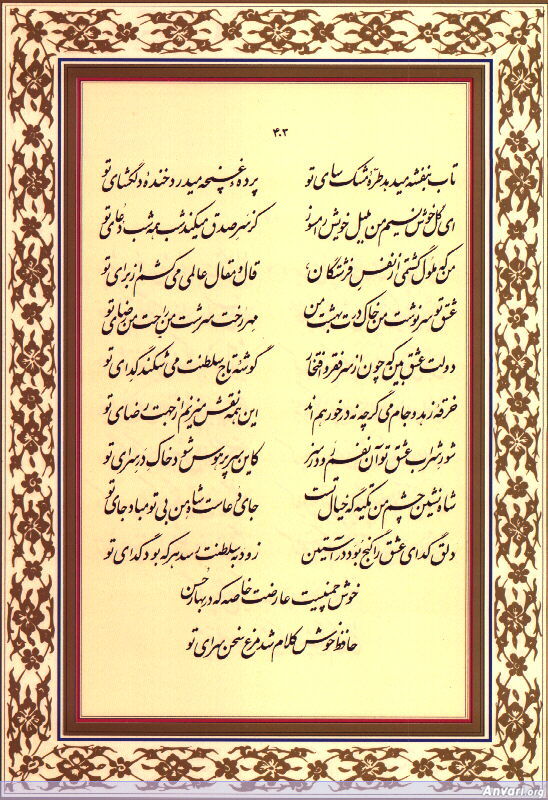 ۴۰۳
تاب بنفشه میدهد طرهٔ مشک سای تو پردهٔ غنچه میدرد خندهٔ دلگشای تو
ای گل خوش نسیم من بلبل خویش را مسوز کز سر صدق میکند شب همه شب دعای تو
من که ملول گشتمی از نفس فرشتگان قال و مقال عالمی می کشم از برای تو
عشق تو سرنوشت من خاک درت بهشت من مهر رخت سرشت من راحت من رضای تو
دولت عشق بین که چون از سر فقر و افتخار گوشهٔ تاج سلطنت می شکند گدای تو
خرقهٔ زهد و جام می گرچه نه در خور هم اند این همه نقش میزنم از جهت رضای تو
شور شراب عشق تو آن نفسم رود ز سر کاین سر پر هوس شود خاک در سرای تو
شاه نشین چشم من تکیه گه خیال تست جای دعاست شاه من بی تو مباد جای تو
دلق گدای عشق را گنج بود در آستین زود به سلطنت رسد هر که بود گدای تو
خوش چمنیست عارضت خاصه که در بهار حسن
حافظ خوش کلام شد مرغ سخن سرای تو
Anvari.org